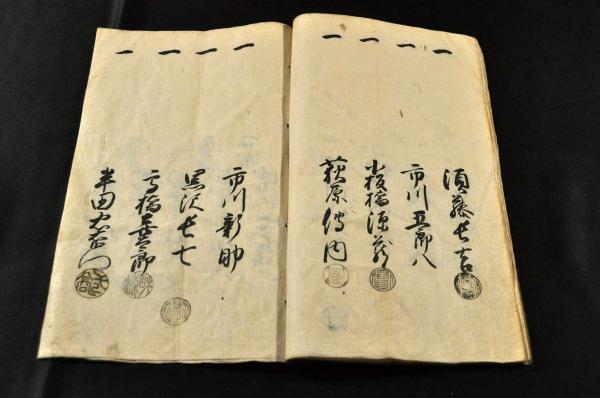 一 須藤長吉
一 市川五郎八
一 小板橋源蔵
一 荻原傳内
一 市川新助
一 黒沢長七
一 高橋喜三郎
一 半田右衛門